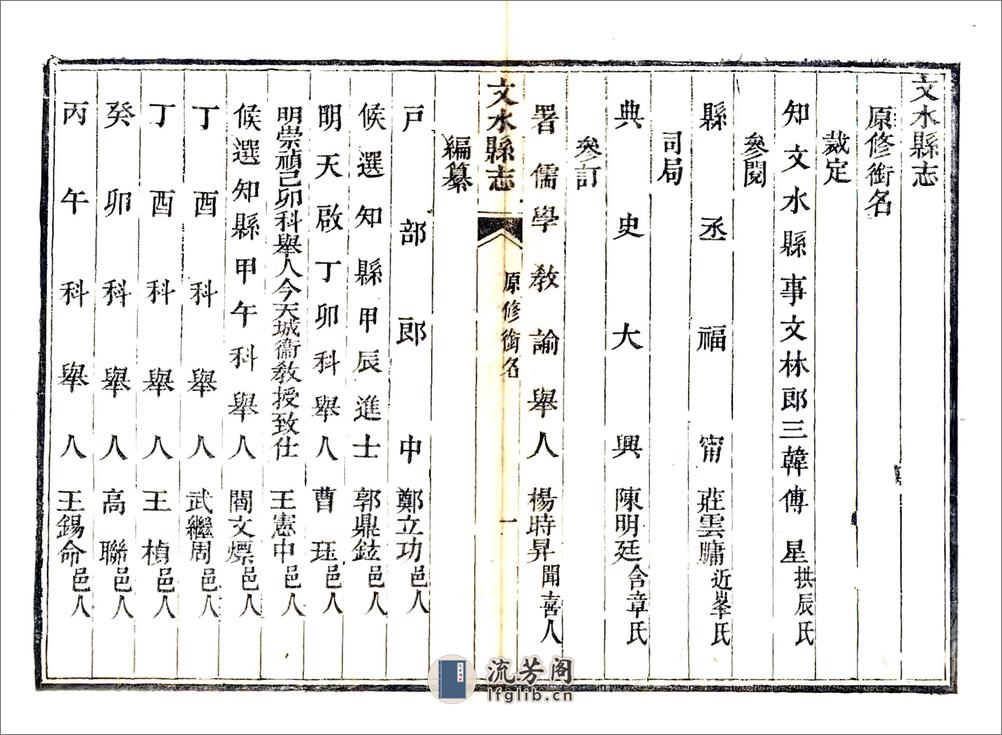 文水縣志
原修銜名
裁定
知文水縣事文林郎三韓傅星拱辰氏
參閱
縣丞福甯莊雲牗近峯氏
司局
典史大興陳明廷含章氏
參訂
署儒學教諭舉人楊時昇聞喜人
文水縣志 原修銜名 一
編纂
戸部郎中鄭立功邑人
候選知縣甲辰進士郭鼎鉉邑人
明天啟丁卯科舉人曹珏邑人
明崇禎己卯科舉人今天城衞教授致仕王憲中邑人
候選知縣甲午科舉人閻文煙邑人
丁酉科舉人武繼周邑人
丁酉科舉人王楨邑人
癸卯科舉人高聯邑人
丙午科舉人王錫命邑人
流芳阁
lfglib.cn